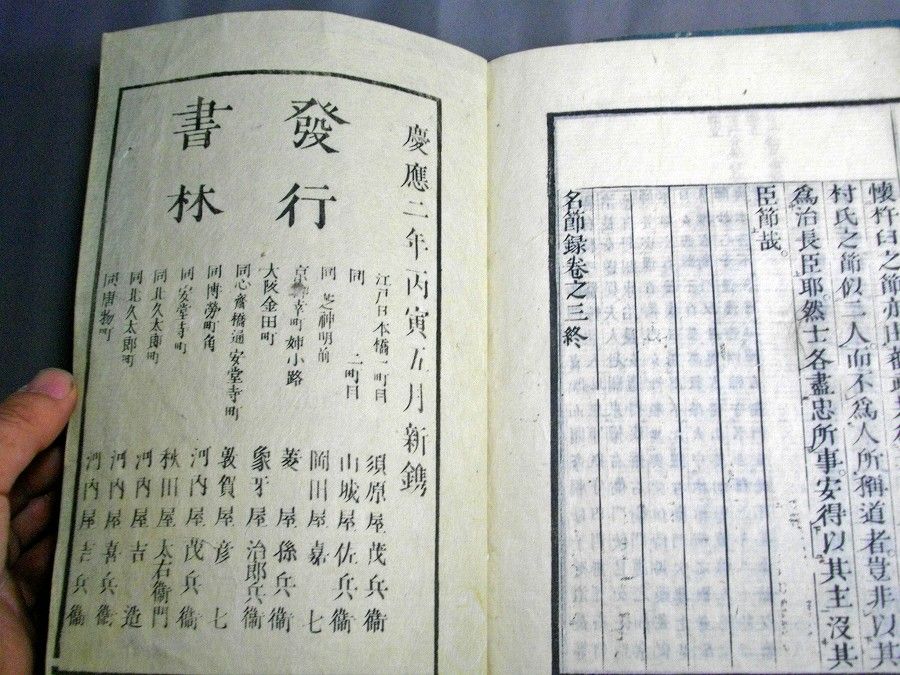 懷杵臼之節亦由
村氏之節似三人而不爲人所稱道者。豈非以其
爲治長臣耶然士各盡忠所事。安得以其主沒其
臣節哉。
名節録卷之三終
慶應二年丙寅五月新鐫
發行
書林
江戸日本橋一町目 須原屋茂兵衞
同 二町目 山城屋佐兵衞
同 芝神明前 岡田屋嘉七
京 幸町姉小路 菱屋孫兵衞
大阪金田町 象牙屋治郎兵衞
同心齋橋通安堂寺町 敦賀屋彦七
同博勞町角 河内屋茂兵衞
同安堂寺町 秋田屋太右衞門
同北久太郎町 河内屋吉造
同北久太郎町 河内屋喜兵衞
同唐物町 河内屋吉兵衞